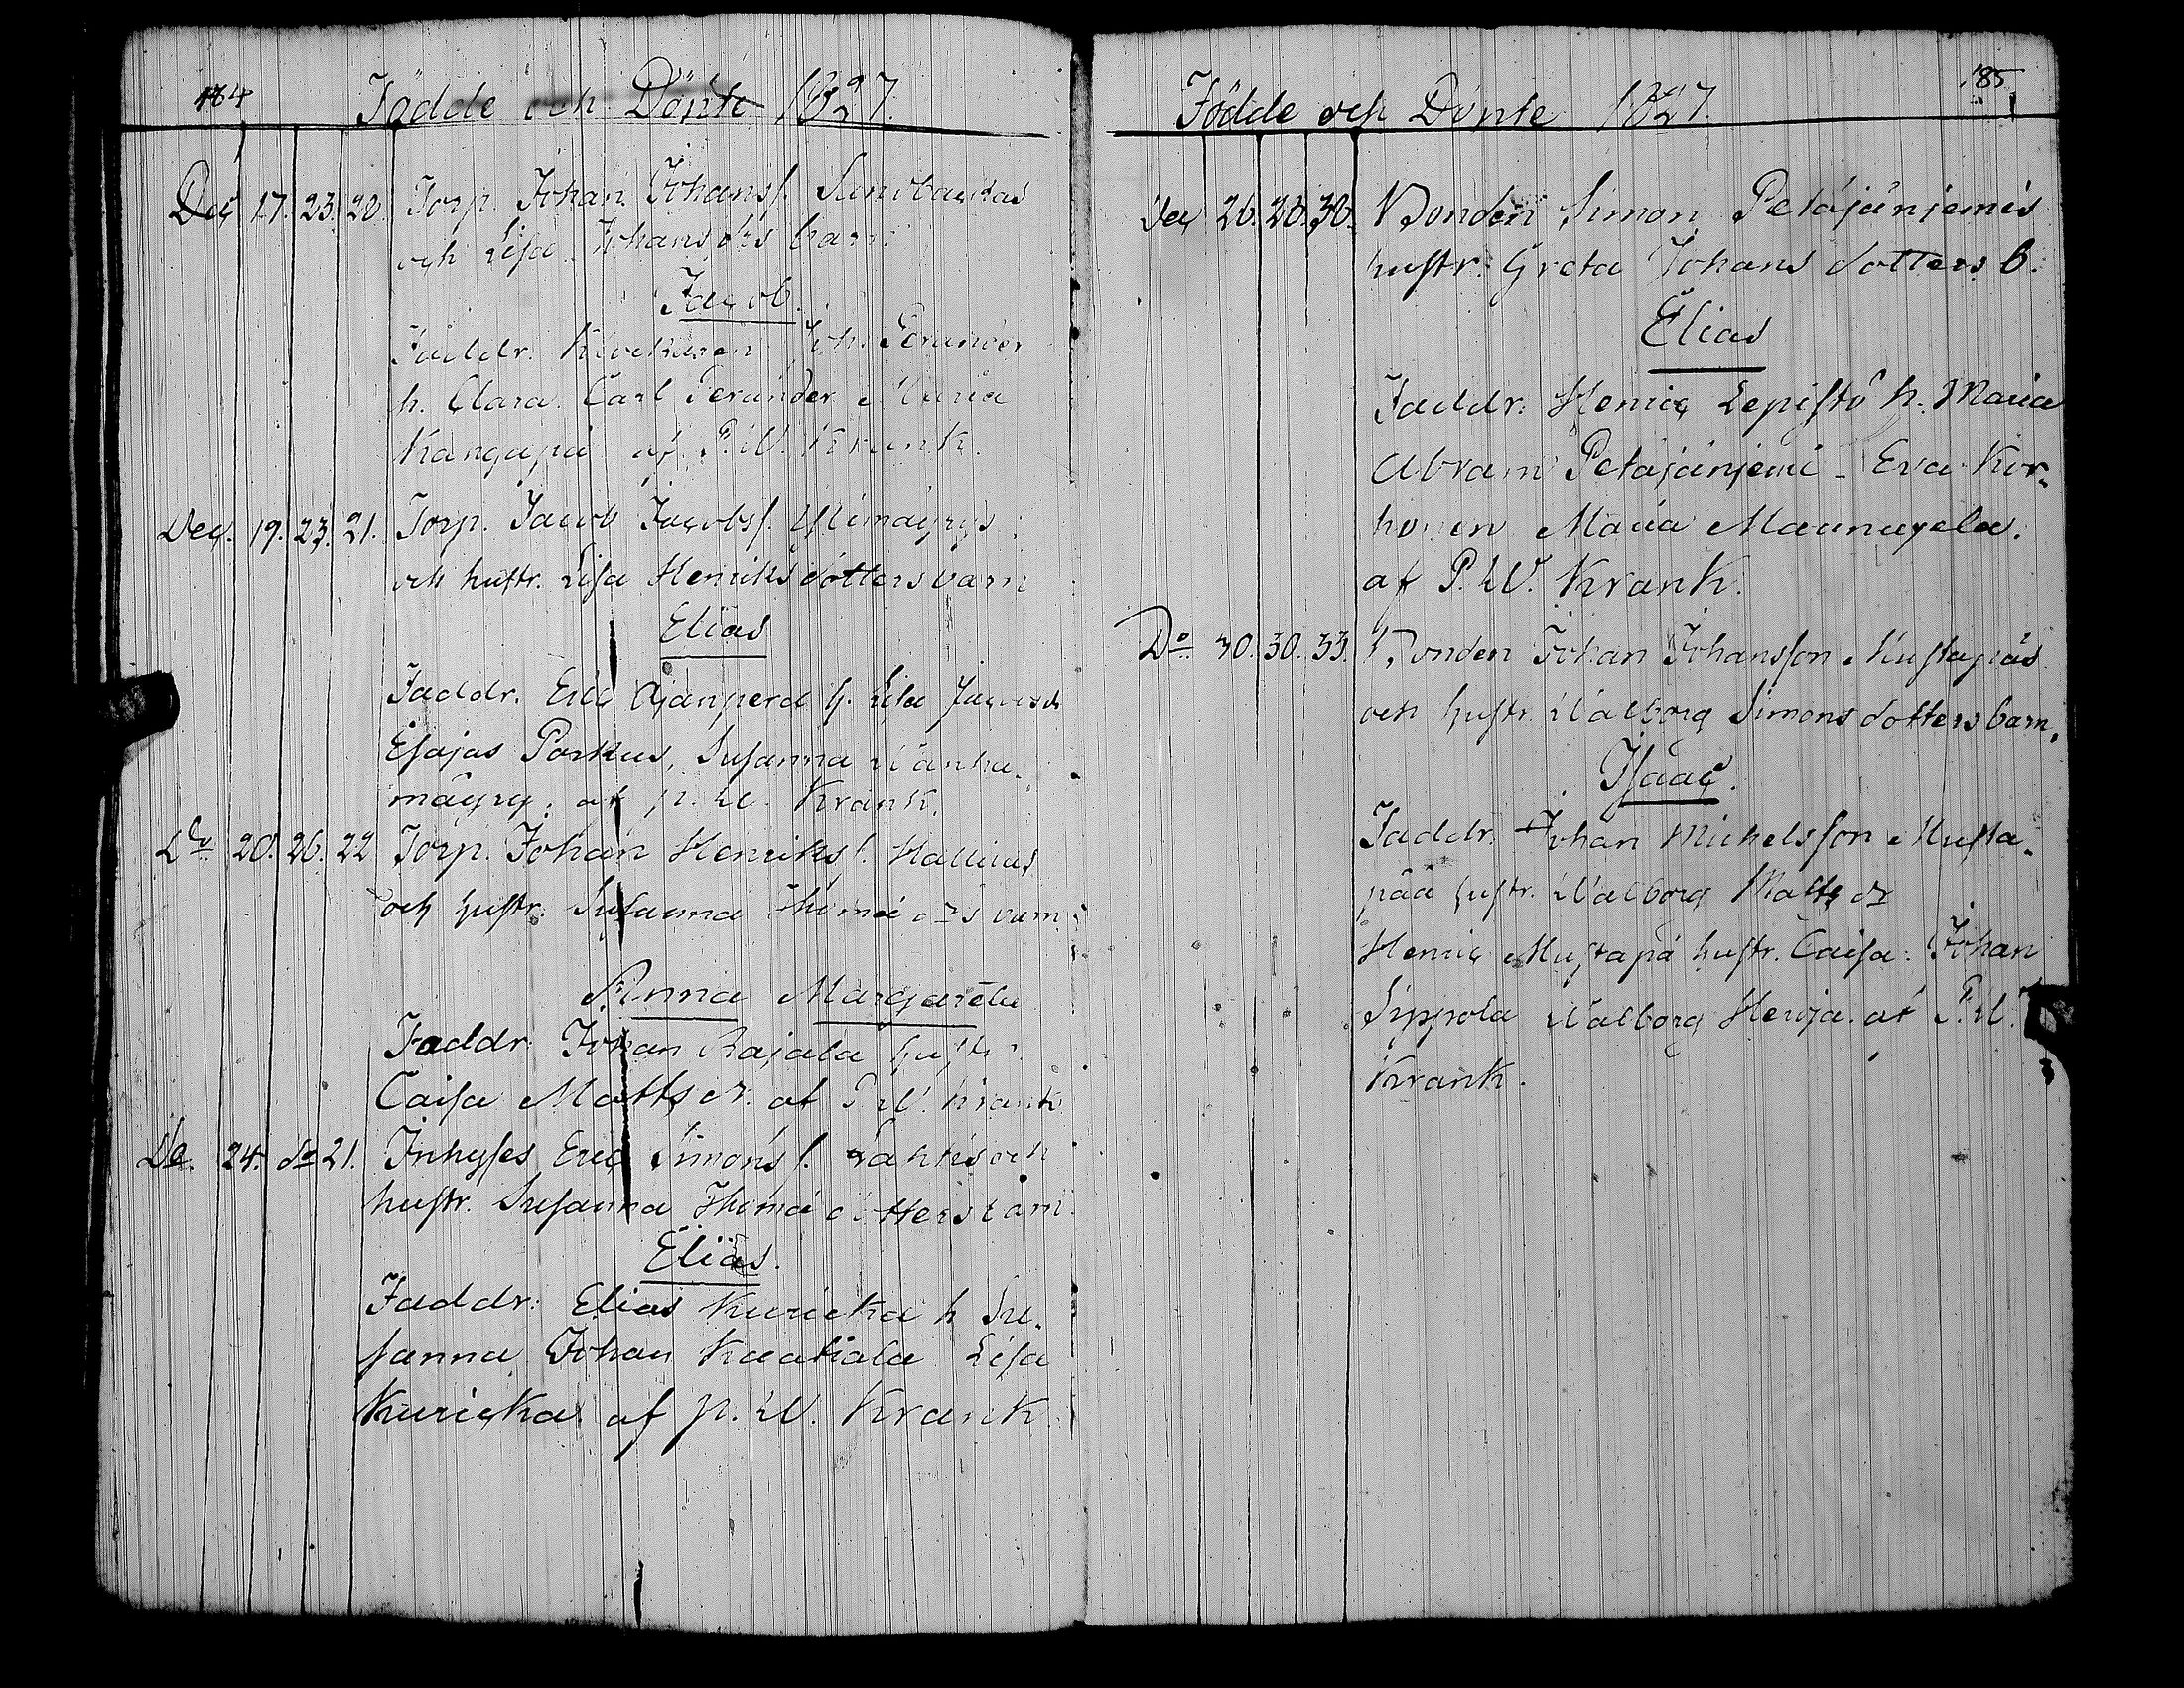 184
Födde och Döpte 1827.
Dec 17. 23. 28. Torp. Johan Johanss.
och Lisa Johans drs barn
Jacob.
Faddr. Joh. Forander
h. Clara. Carl Terander Maria
Kangapä af P. W. Krank.
Dec. 19. 23. 21. Torp. Jacob Jacobss. Ylimäyrys
och hustr. Lisa Henriksdotters barn
Elias
Faddr. Eric Äjänperä h. Lisa
Esajas Porkus, Susanna Wanha-
mäyry. af p. W. Krank.
Do 20. 26. 22 Torp. Johan Henrikss. Hallinas
och hustr. Susanna Thomä drs barn
Anna Margareta
Faddr. Johan Rajala hustr
Caisa Matts dr. af P W. Krank
De. 24. do 21. Inhyses Eric Simons s. och
hustr. Susanna Thomä dotters barn.
Elias.
Faddr: Elias Kuricka h Su-
sanna Johan Kaatiala Lisa
Kuricka af p. W. Krank
185
Födde och Döpte 1827.
Dec 26. 28. 30. Bonden Simon Petäjäniemis
hustr. Greta Johans dotters b.
Elias
Faddr: Henric Lepistö h. Maria
Abram Petäjäniemi - Eva Kor-
honen Maria Maunuxela.
af P. W. Krank.
Do 30. 30. 33. Bonden Johan Johansson Mustapäs
och hustr. Walborg Simons dotters barn.
Isaac.
Faddr. Johan Michelsson Musta-
pää hustr. Walborg Matts dr
Henric Mustapä hustr. Caisa. Johan
Sippola Walborg Heroja. af P. W.
Krank.